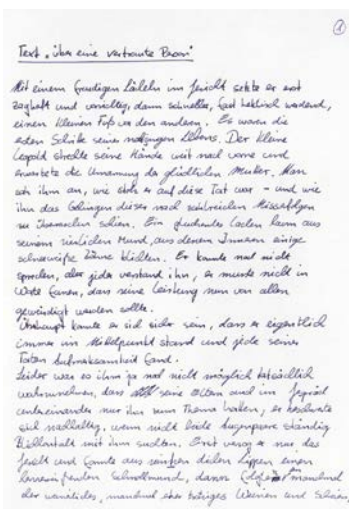 ①
Text „über eine vertraute Person"
Mit einem freudigen Lächeln im Gesicht setzte er erst
zaghaft und vorsichtig, dann schneller, fast hektisch werdend,
einen kleinen Fuß vor den andern. Es waren die
ersten Schritte seines Lebens. Der kleine
Leopold streckte seine Hände weit nach vorne und
erwartete die Umarmung der glücklichen Mutter. Man
sah ihm an, wie stolz er auf diese Tat war – und wie
ihn das Gelingen dieser nach zahlreichen Misserfolgen
zu überraschen schien. Ein Lachen kam aus
seinem niedlichen Mund, aus dessen Innern einige
schneeweiße Zähne blickten. Er konnte noch nicht
sprechen, aber jeder verstand ihn, er musste nicht in
Worte fassen, dass seine Leistung nun von allen
gewürdigt werden sollte.
Überhaupt konnte er sich sicher sein, dass er eigentlich
immer im Mittelpunkt stand und jede seiner
Taten Aufmerksamkeit fand.
Leider war es ihm ja noch nicht möglich tatsächlich
wahrzunehmen, dass seine Eltern auch im Gespräch
untereinander nur ihn zum Thema hatten, er beschwerte
sich nachhaltig, wenn nicht beide Augenpaare ständig
Blickkontakt mit ihm suchten. Erst verzog er nur das
Gesicht und formte aus seinen dicken Lippen einen
Schmollmund, dann folgte manchmal
der weinerliches, manchmal eher trotziges Weinen und Schreien,